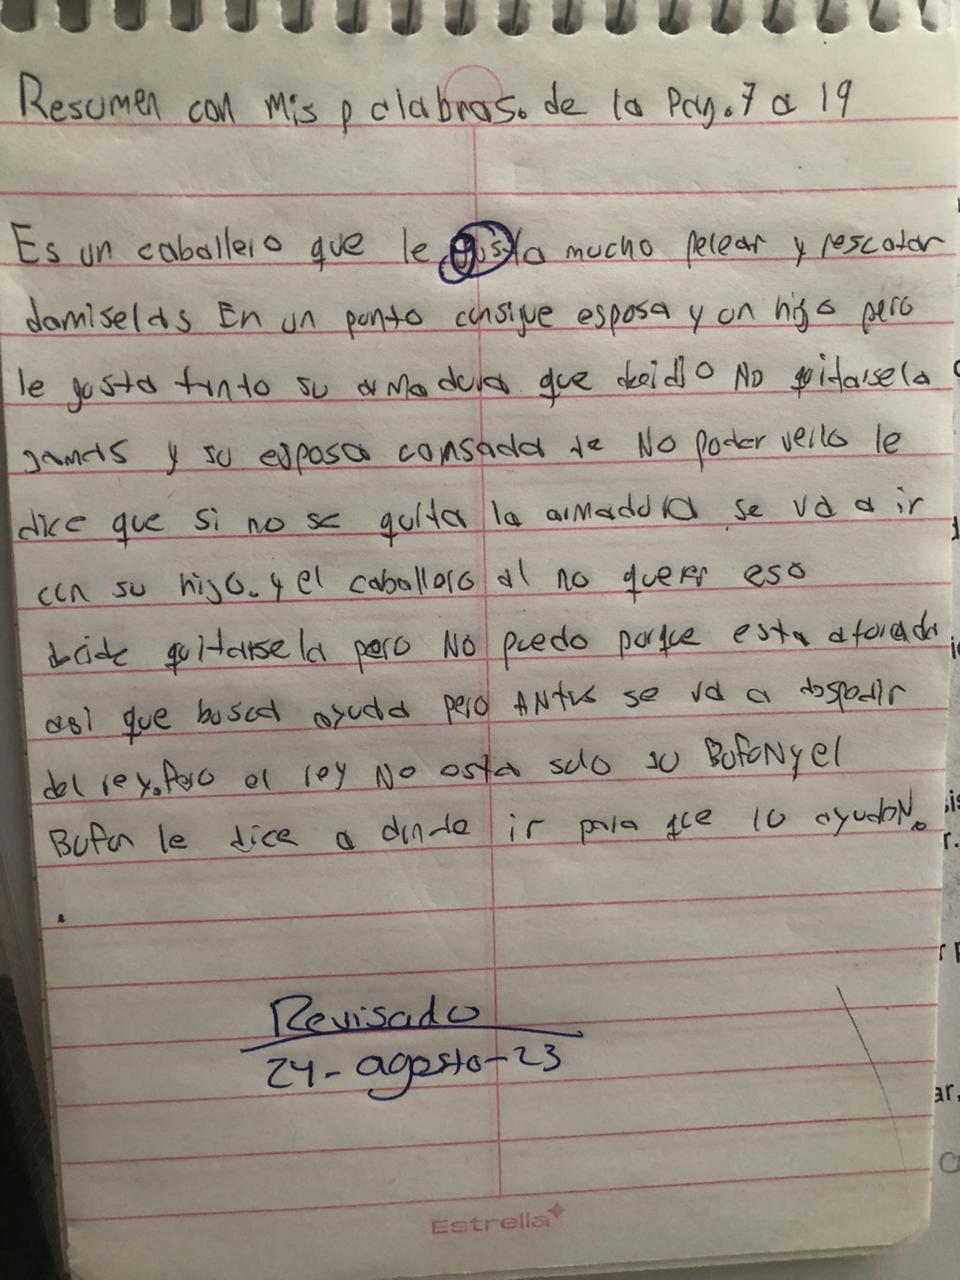 Resumen con mis palabras. de la Pag. 7 a 19
Es un caballero que le gusta mucho pelear y rescatar
damiselas En un punto consigue esposa y un hijo pero
le gusta tanto su armadura que decidio No quitarsela
jamas y su esposa cansada de No poder verlo le
dice que si no se quita la armadura se va a ir
con su hijo. y el caballero al no querer eso
decide quitarsela pero No puedo porque esta atorada
asi que busca ayuda pero ANtes se va a despedir
del rey. Pero el rey No esta solo su BufoN y el
Bufon le dice a donde ir para que lo ayudeN.
Revisado
24-agosto-23
Estrella